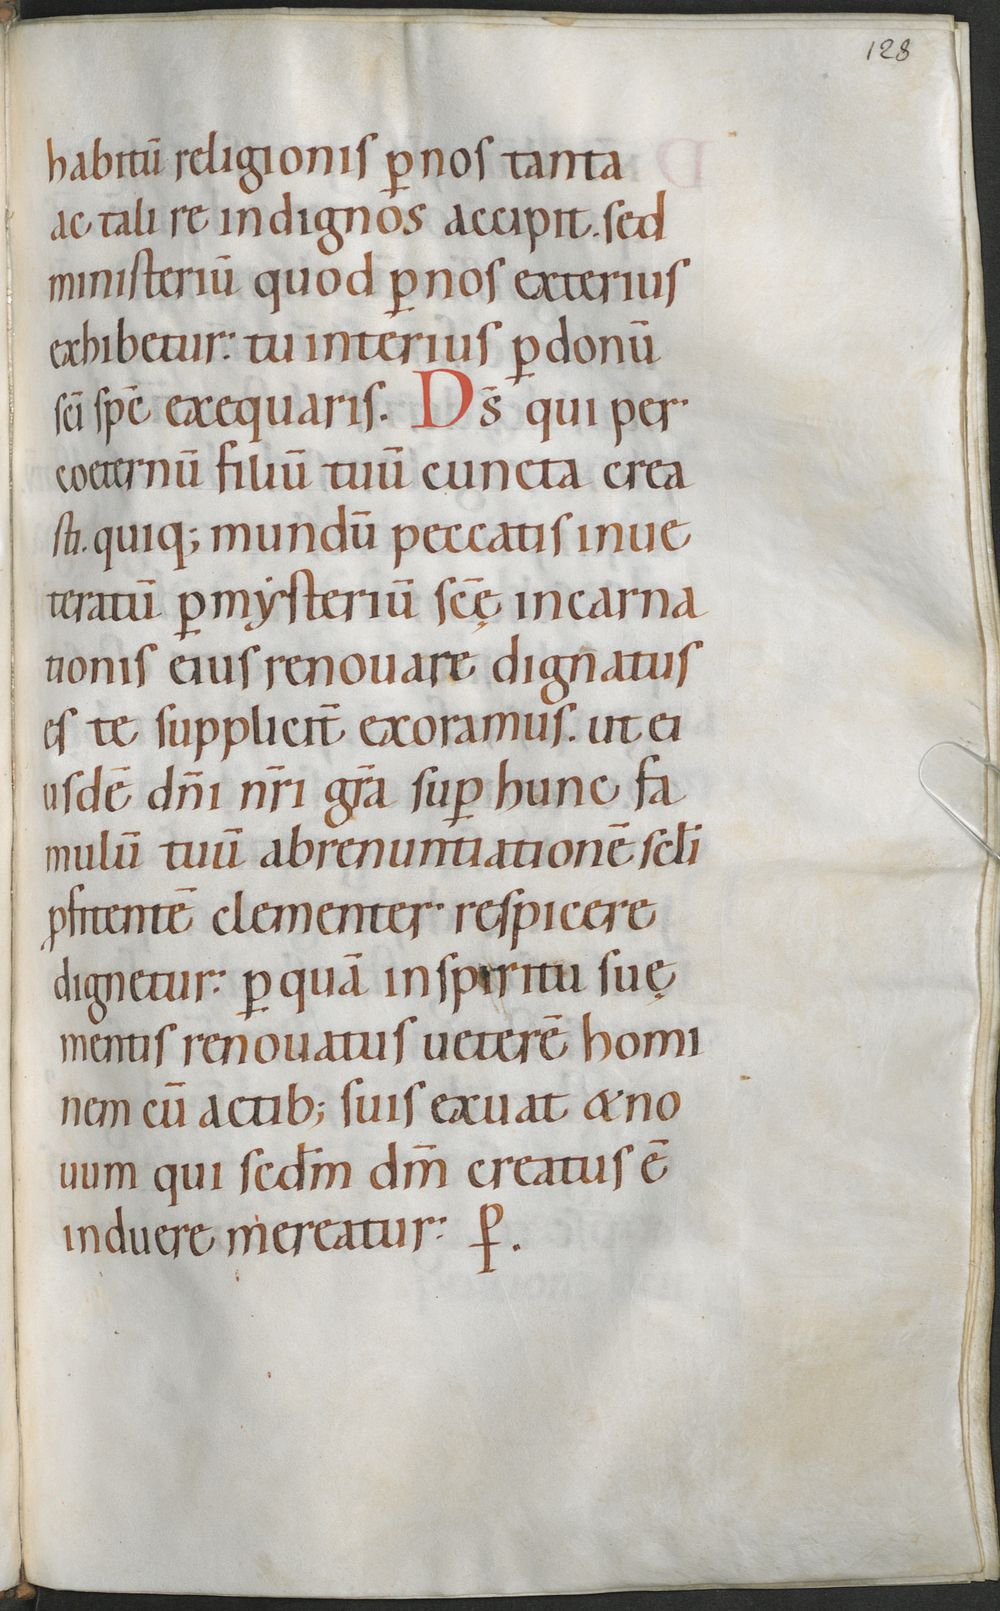 128
habitū religionis ꝑ nos tanta
ac tali re indignos accipit. sed
ministeriū quod ꝑ nos exterius
exhibetur: tu interius ꝑ donū
sc̄i sp̄c exequaris. Ds̄ qui per
coeternū filiū tuū cuncta crea
sti. quiq; mundū peccatis inue
teratū ꝑ mẏsteriū sc̄ę incarna
tionis eius renouare dignatus
es te supplicit̄ exoramus. ut ei
usdē dn̄i nr̄i gr̄a suꝑ hunc fa
mulū tuū abrenuntiationē scli
ꝓfitentē clementer respicere
dignetur: ꝑ quā in spiritu suę
mentis renouatus ueterē homi
nem cū actib; suis exuat & no
uum qui scdm̄ dm̄ creatus ē
induere mereatur: ꝑ.